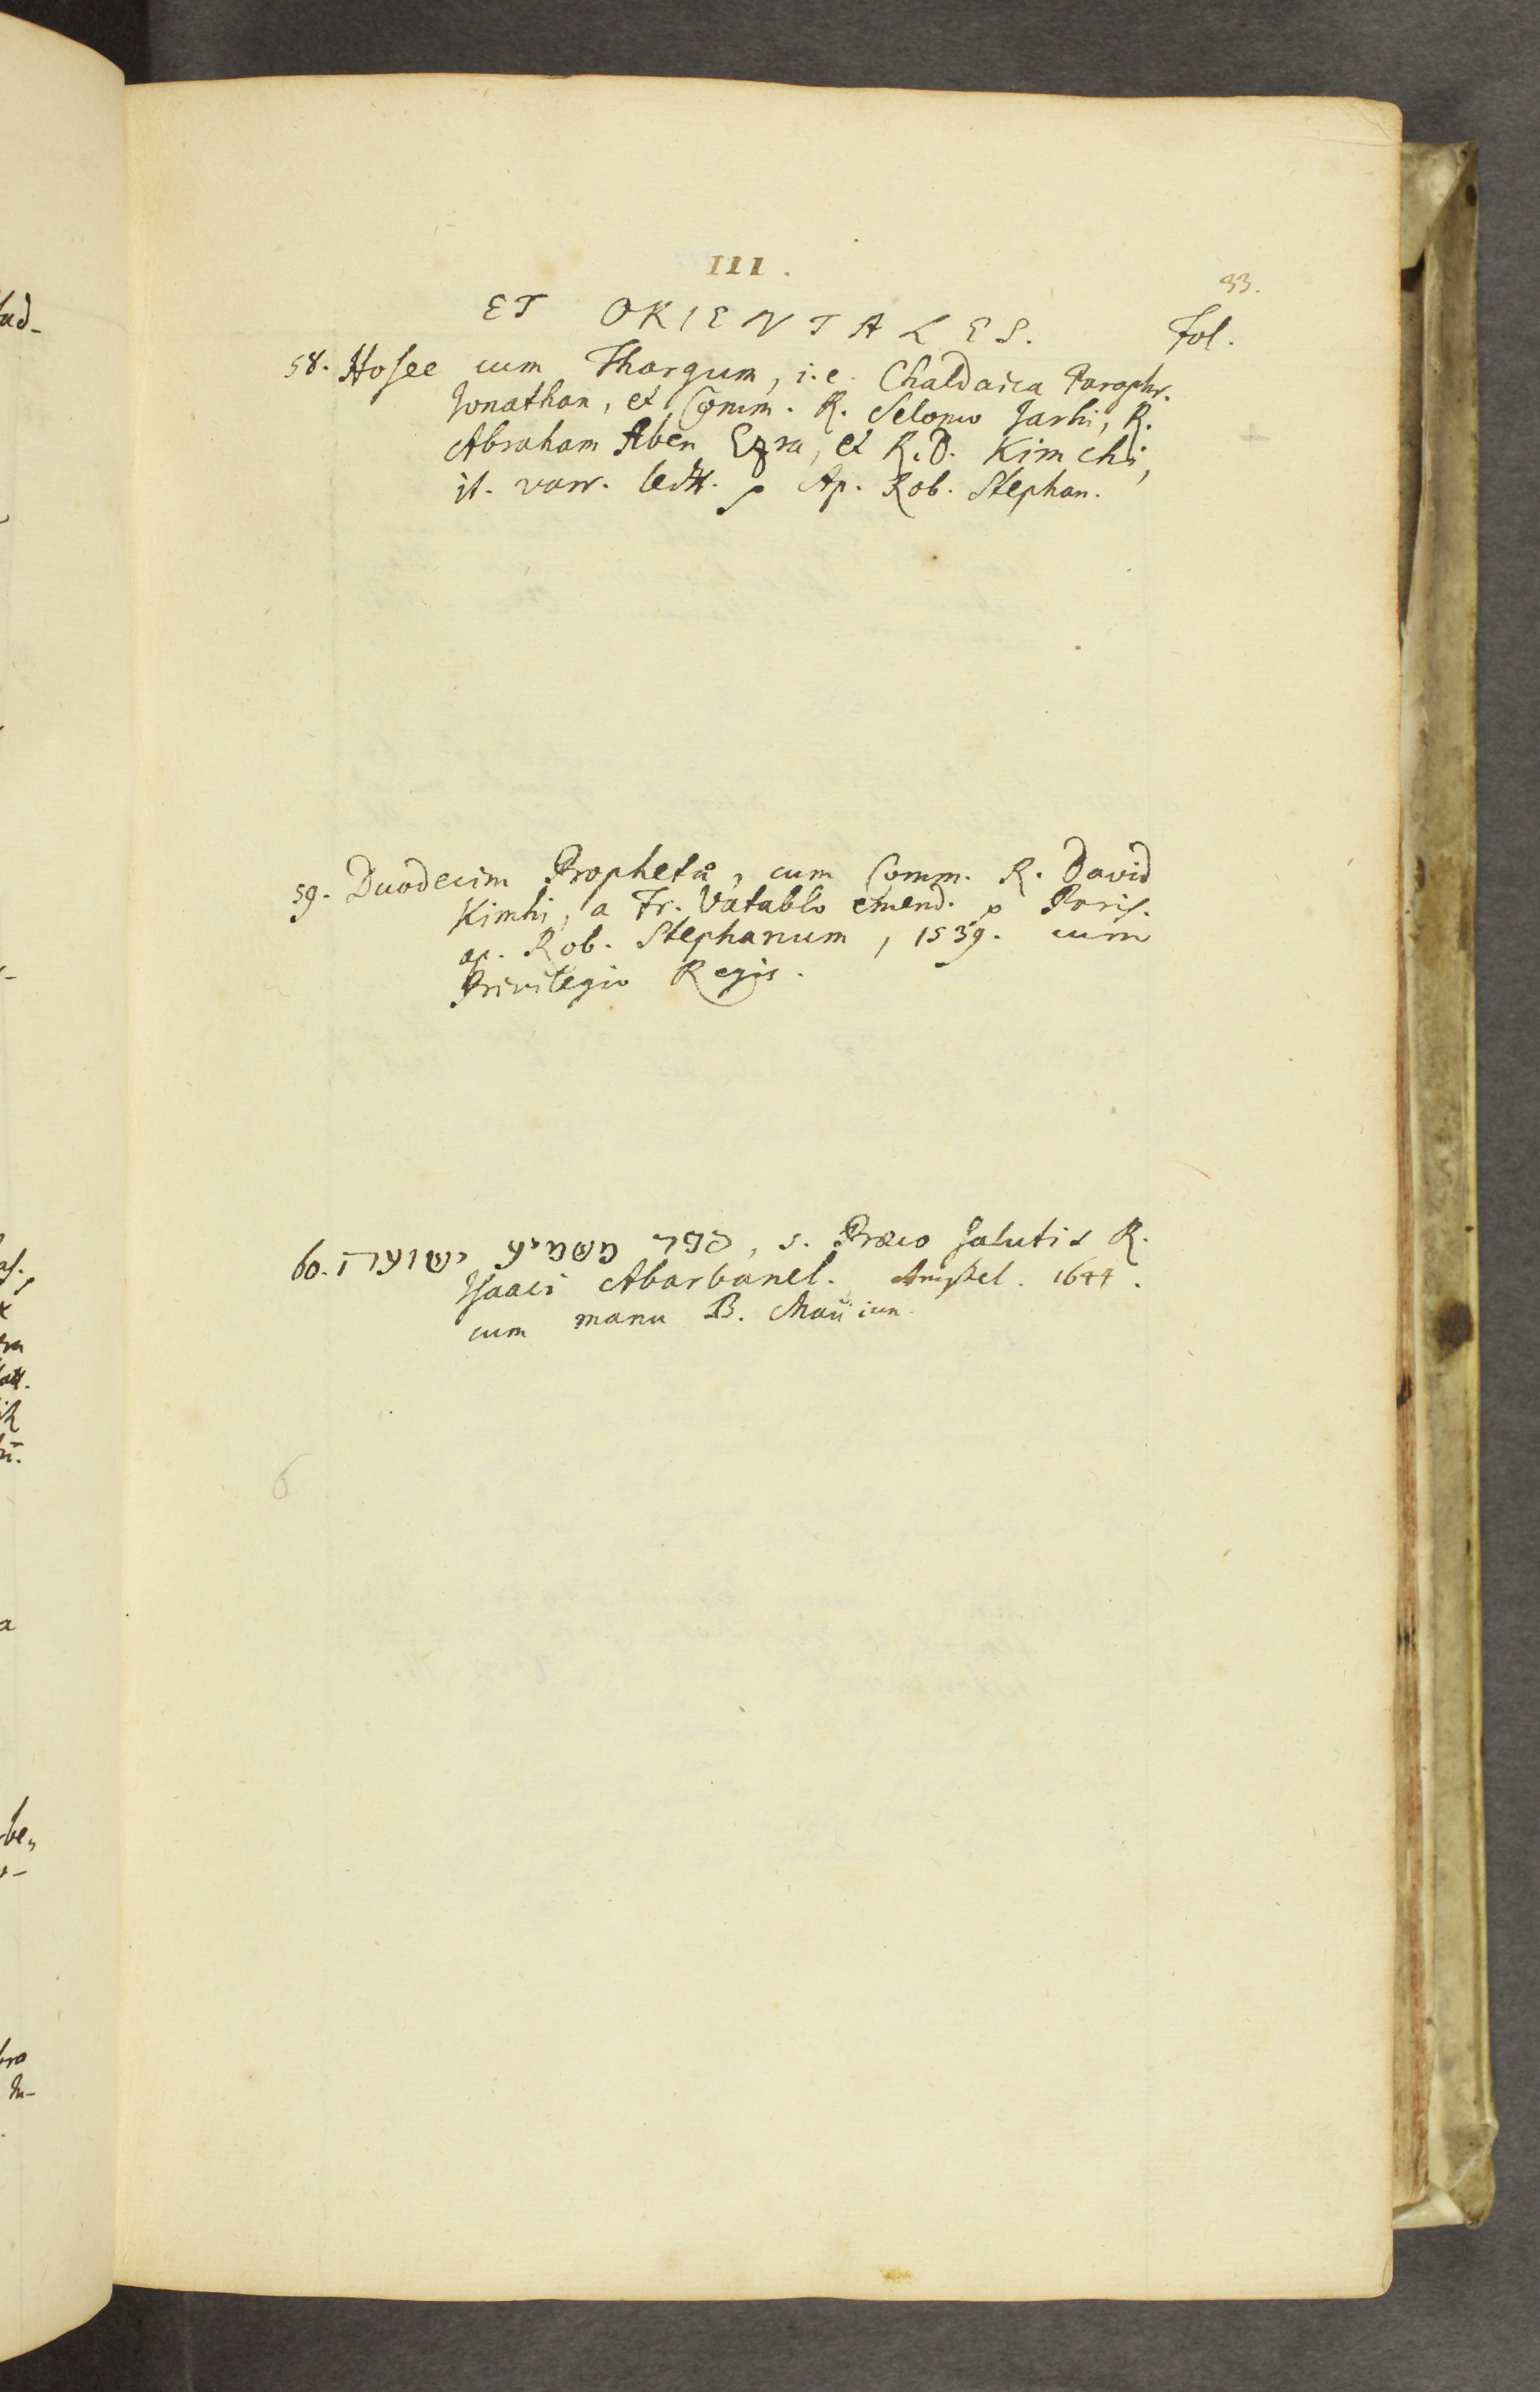 III.
33.
ET ORIENTALES. Fol.
58. Hosee cum Thargum, i.e. Chaldaica Paraphr.
Jonathan, et Comm. R. Selomo Jarhi, R.
Abraham Aben Ezra, et R. D. Kimchi,
it. varr. lectt. Ap. Rob. Stephan.
59. Duodecim Prophetæ, cum Comm. R. David
Kimhi, a Fr. Vatablo emend. Paris.
ap. Rob. Stephanum, 1539. cum
Privilegio Regis.
60. ספר משמיע ישועה, s. Præco Salutis R.
Isaaci Abarbanel. Amstel. 1644.
cum manu B. Maii iun.
6